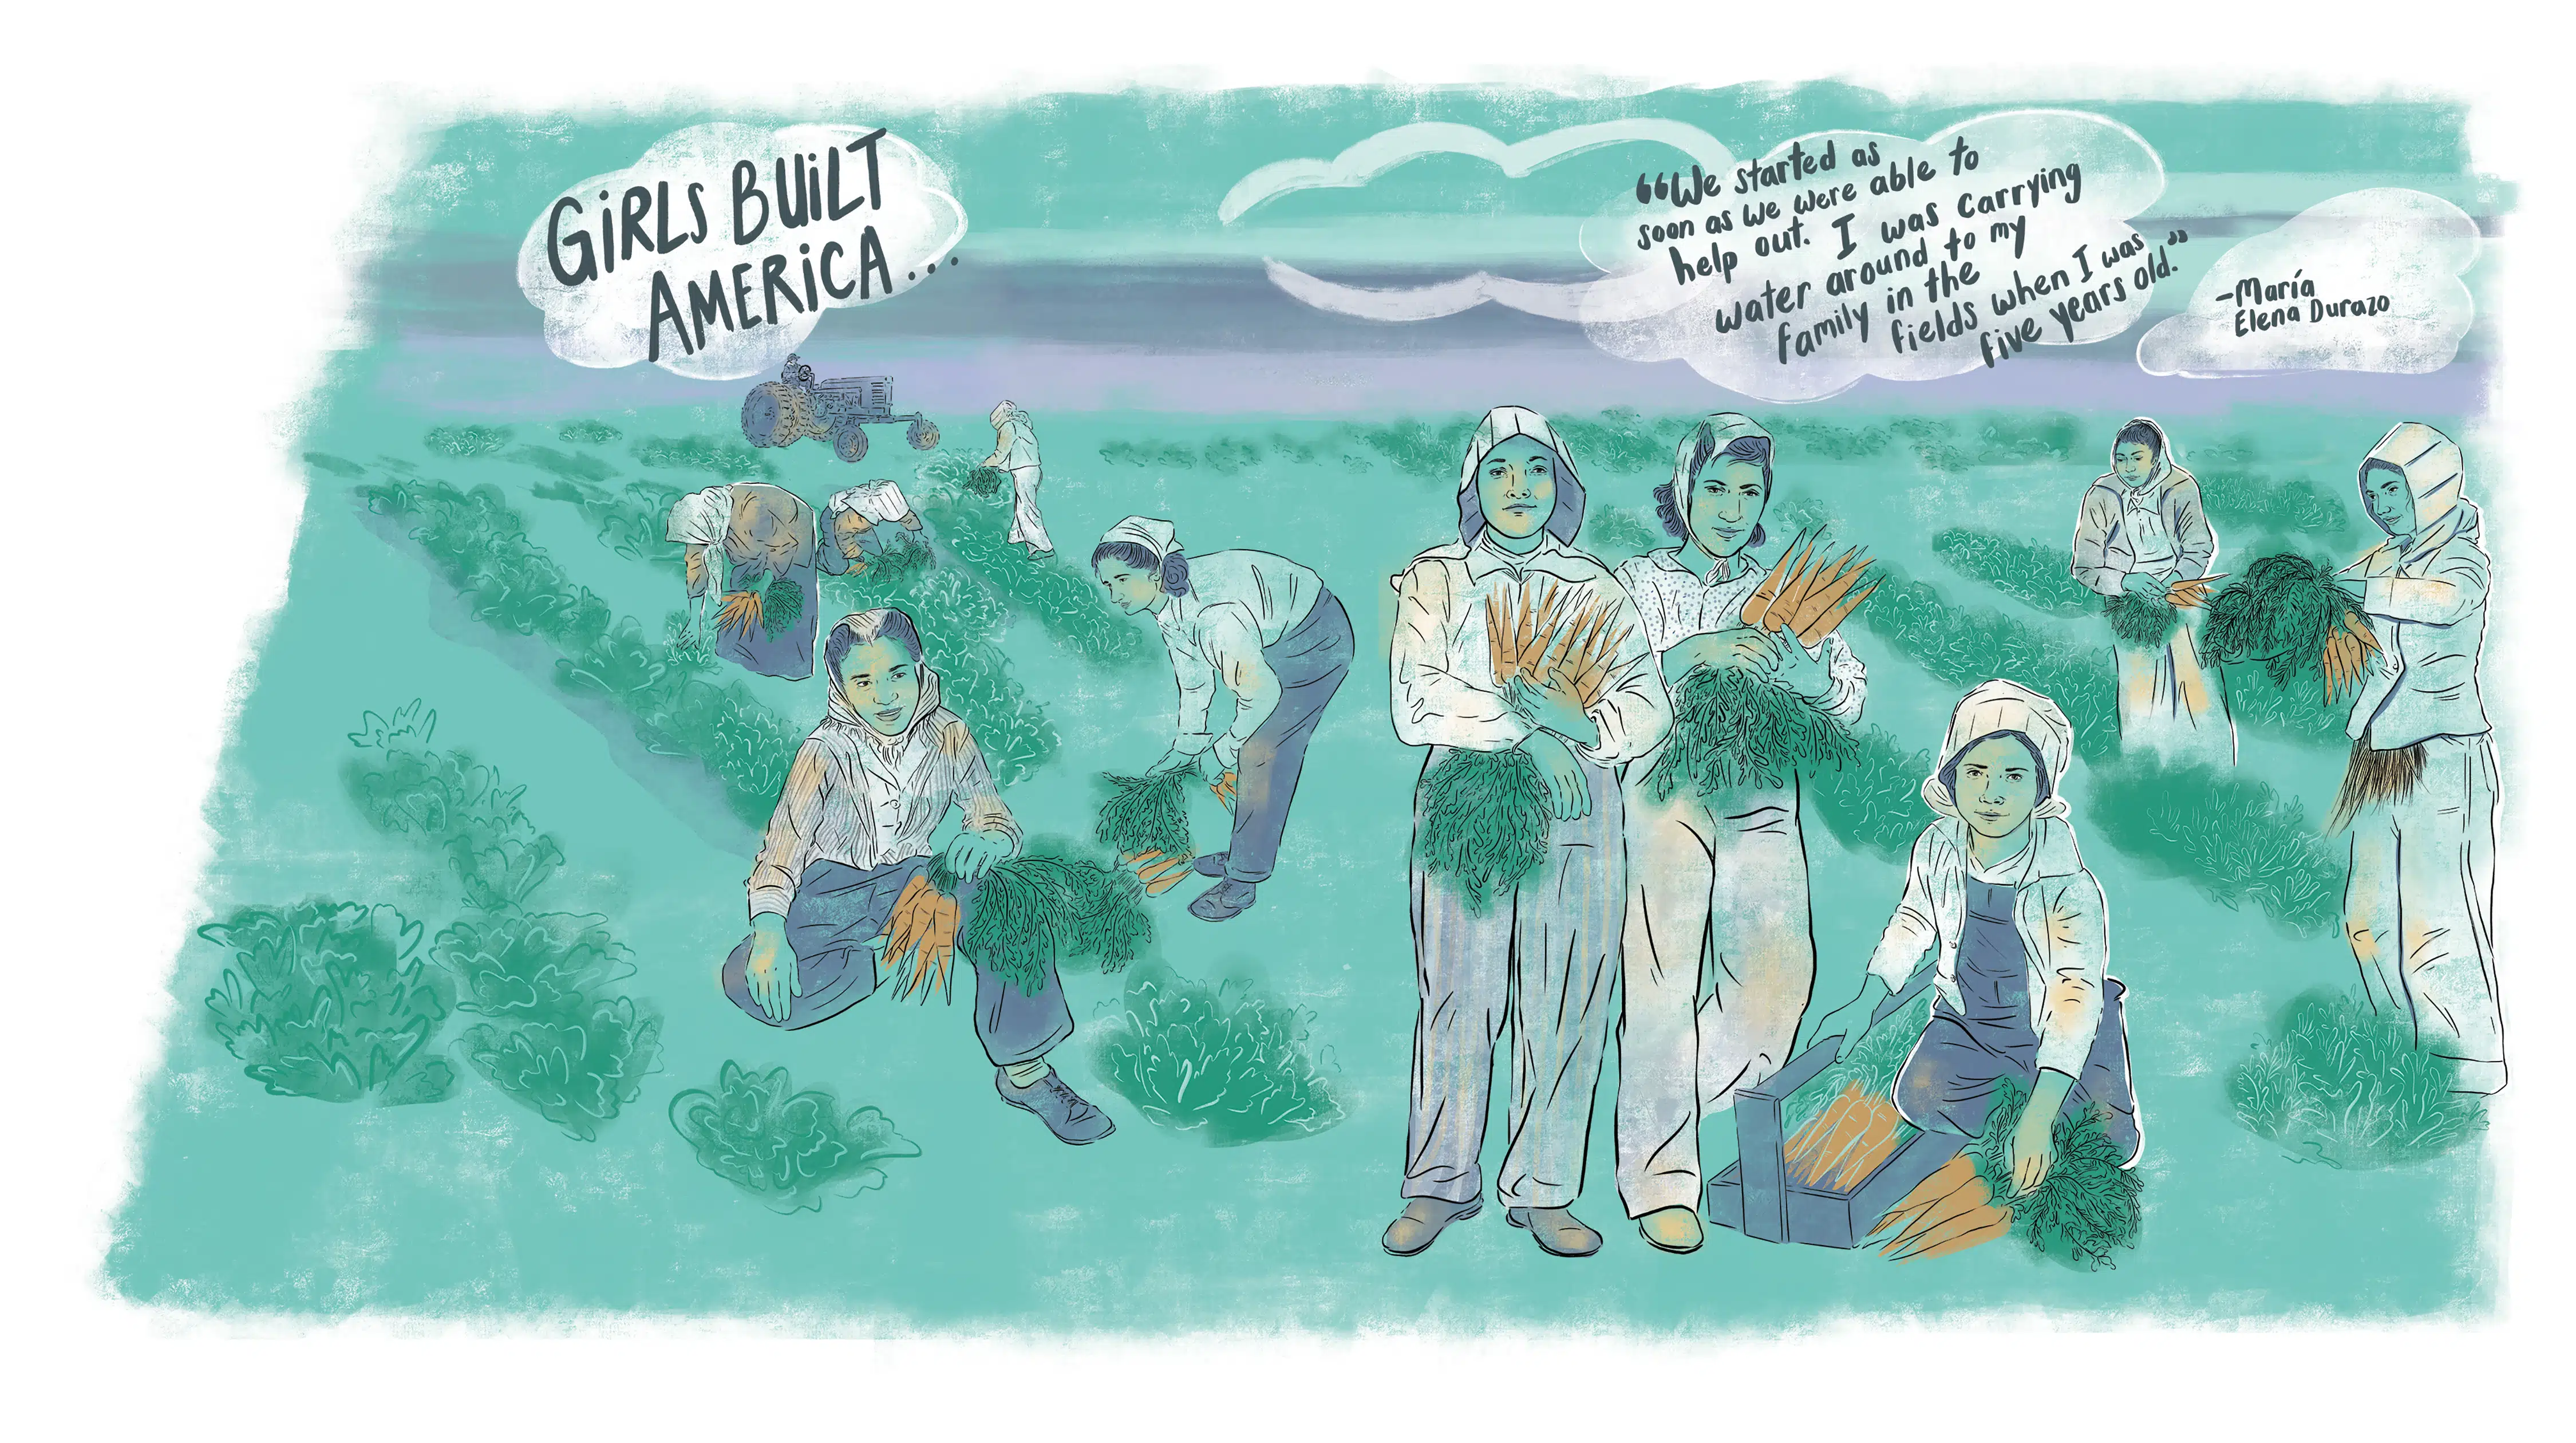 GiRLS BUiLT
AMERiCA...
“We started as
soon as we were able to
help out. I was carrying
water around to my
family in the
fields when I was
five years old.”
-María
Elena Durazo